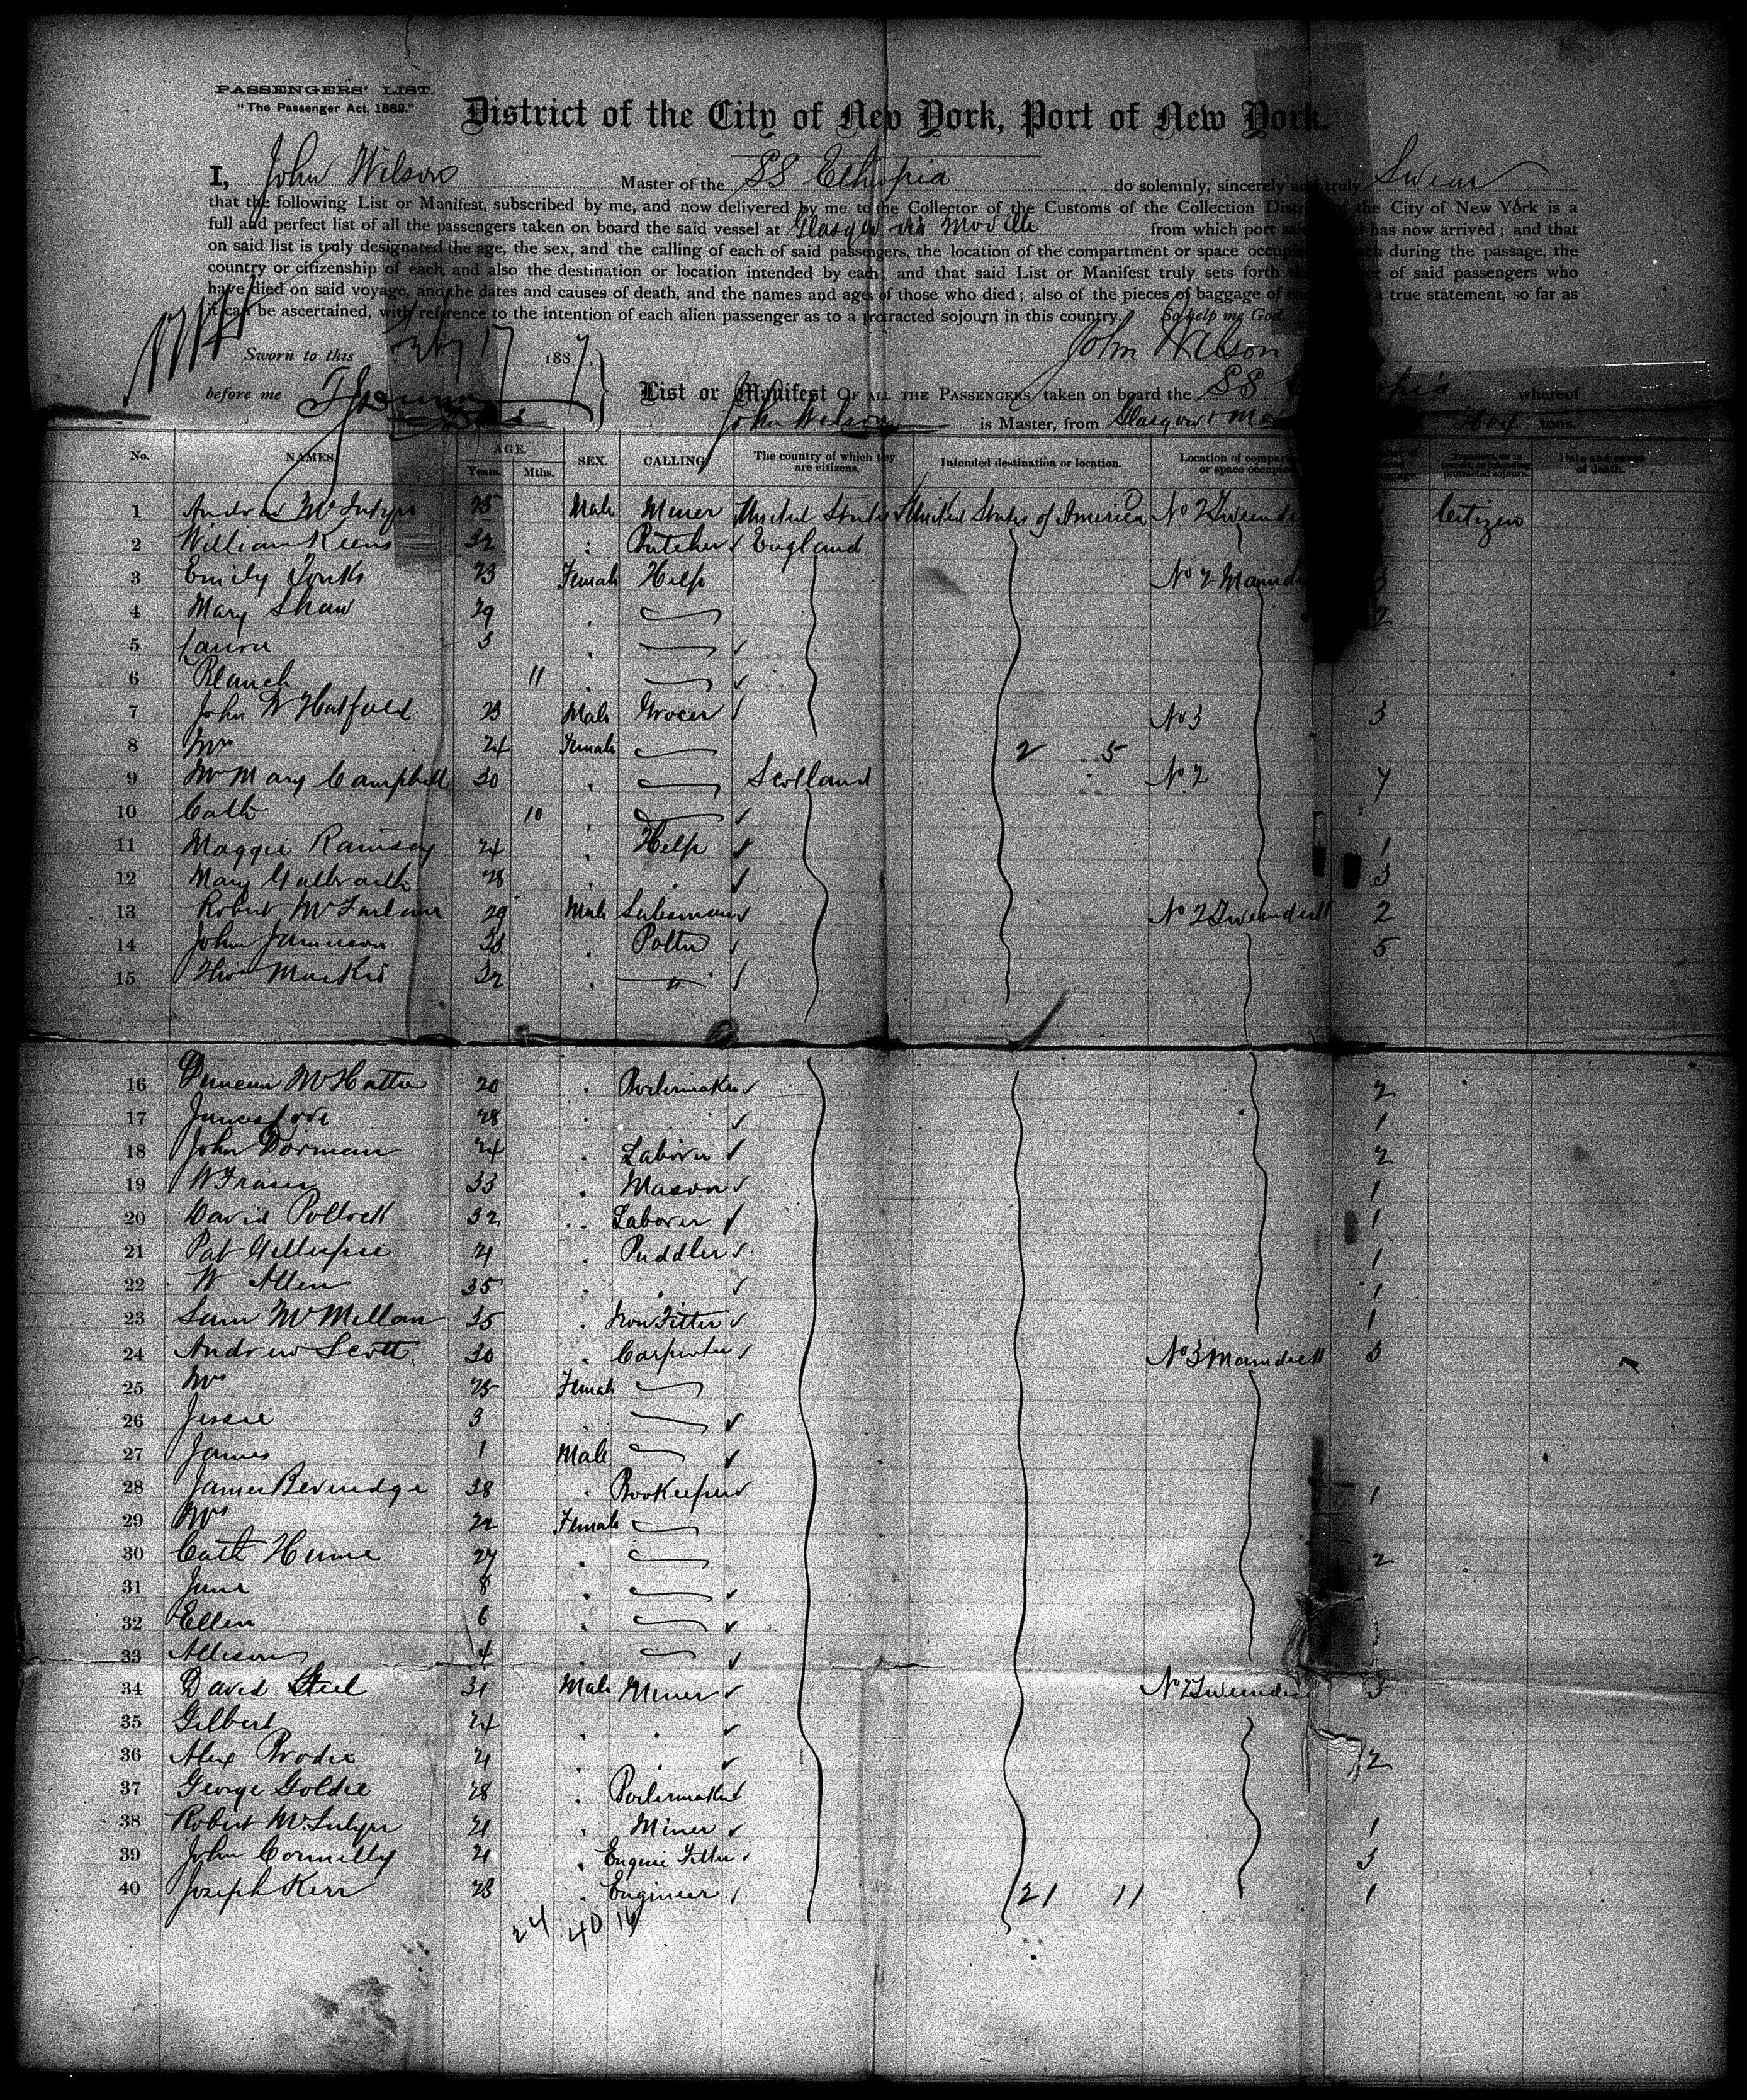 PASSENGERS' LIST.
"The Passenger Act, 1882."
District of the City of New York, Port of New York.
I, John Wilson Master of the SS Ethiopia do solemnly, sincerely and truly Swear
that the following List or Manifest, subscribed by me, and now delivered by me to the Collector of the Customs of the Collection District of the City of New York is a
full and perfect list of all the passengers taken on board the said vessel at Glasgow via Moville from which port said has now arrived; and that
on said list is truly designated the age, the sex, and the calling of each of said passengers, the location of the compartment or space occupied during the passage, the
country or citizenship of each, and also the destination or location intended by each; and that said List or Manifest truly sets forth of said passengers who
have died on said voyage, and the dates and causes of death, and the names and ages of those who died; also of the pieces of baggage of a true statement, so far as
it can be ascertained, with reference to the intention of each alien passenger as to a protracted sojourn in this country. So help me God.
Sworn to this 17 1887. John Wilson
before me
List or Manifest OF ALL THE PASSENGERS taken on board the SS whereof
John Wilson is Master, from Glasgow tons.
No. NAMES. AGE. Years. Mths. SEX. CALLING. The country of which they are citizens. Intended destination or location. Location of or space occupied Date and cause of death.
1 Andrew McIntyre 25 Male Miner United States United States of America No 2 Citizen
2 William Keens 32 " Butcher England
3 Emily Jonks 23 Female Help No 2 3
4 Mary Shaw 29 " 2
5 Laura 3 "
6 Blanch 11 "
7 John W Hatfield 23 Male Grocer No 3 3
8 Mrs 24 Female 2 5
9 Mrs Mary Campbell 30 " Scotland No 2 4
10 Cath 10 "
11 Maggie Ramsay 24 " Help 1
12 Mary Galbraith 28 " " 3
13 Robert McFarlane 29 Male Salesman No 2 Tweendeck 2
14 John Jamieson 33 " Potter 5
15 Thos Mackie 32 " "
16 Duncan McHattie 20 " Boilermaker 2
17 28 " 1
18 John Dorman 24 " Laborer 2
19 W Fraser 33 " Mason 1
20 David Pollock 32 " Laborer 1
21 Pat Gillespie 21 " Puddler 1
22 W Allen 35 " " 1
23 Sam McMillan 35 " Iron Fitter 1
24 Andrew Scott 30 " Carpenter No 3 Maindeck 3
25 Mrs 25 Female
26 Jessie 3 "
27 James 1 Male
28 James Beveridge 38 " Bookeeper 1
29 Mrs 22 Female
30 Cath Hume 27 " 2
31 Jane 8 "
32 Ellen 6 "
33 Allison 4
34 David Steel 31 Male Miner No 2 3
35 Gilbert 24 " "
36 Alex Brodie 21 " " 2
37 George Goldie 28 " Boilermaker
38 Robert McIntyre 21 " Miner 1
39 John Connelly 21 " Engine Fitter 3
40 Joseph Kerr 23 " Engineer 21 11 1
24 40 16